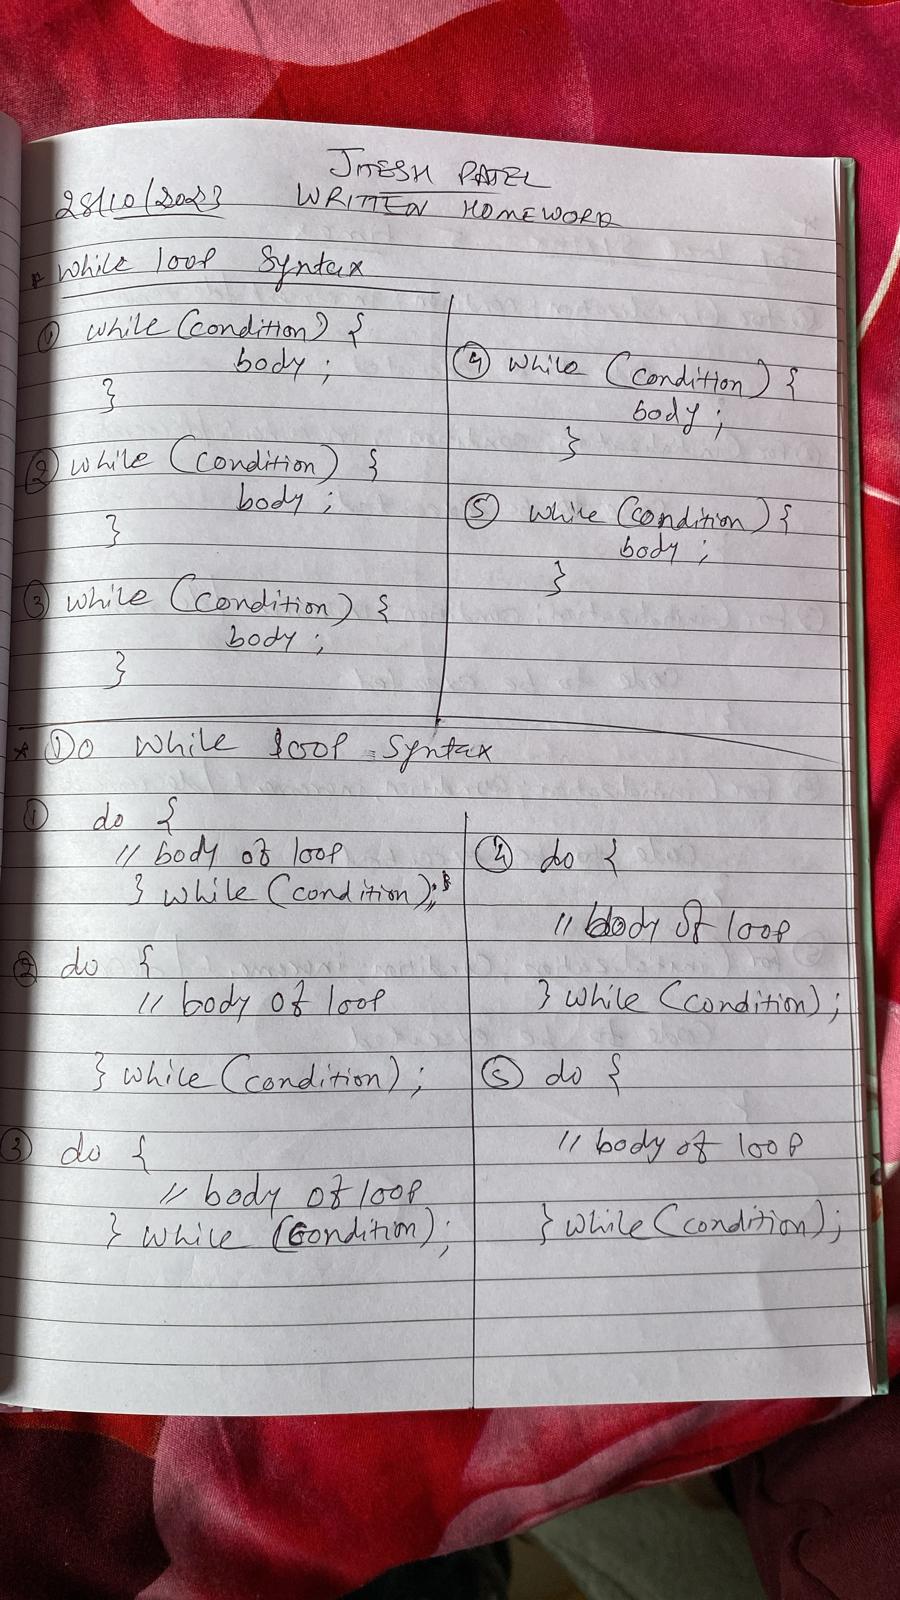 JITESH PATEL
28/10/2023 WRITTEN HOMEWORD
* While loop Syntax
① while (condition) {
body ;
}
② while (condition) {
body ;
}
③ while (condition) {
body ;
}
④ while (condition) {
body ;
}
⑤ while (condition) {
body ;
}
* Do while loop Syntax
① do {
// body of loop
} while (condition);
② do {
// body of loop
} while (condition) ;
③ do {
// body of loop
} while (condition) ;
④ do {
// body of loop
} while (condition) ;
⑤ do {
// body of loop
} while (condition) ;